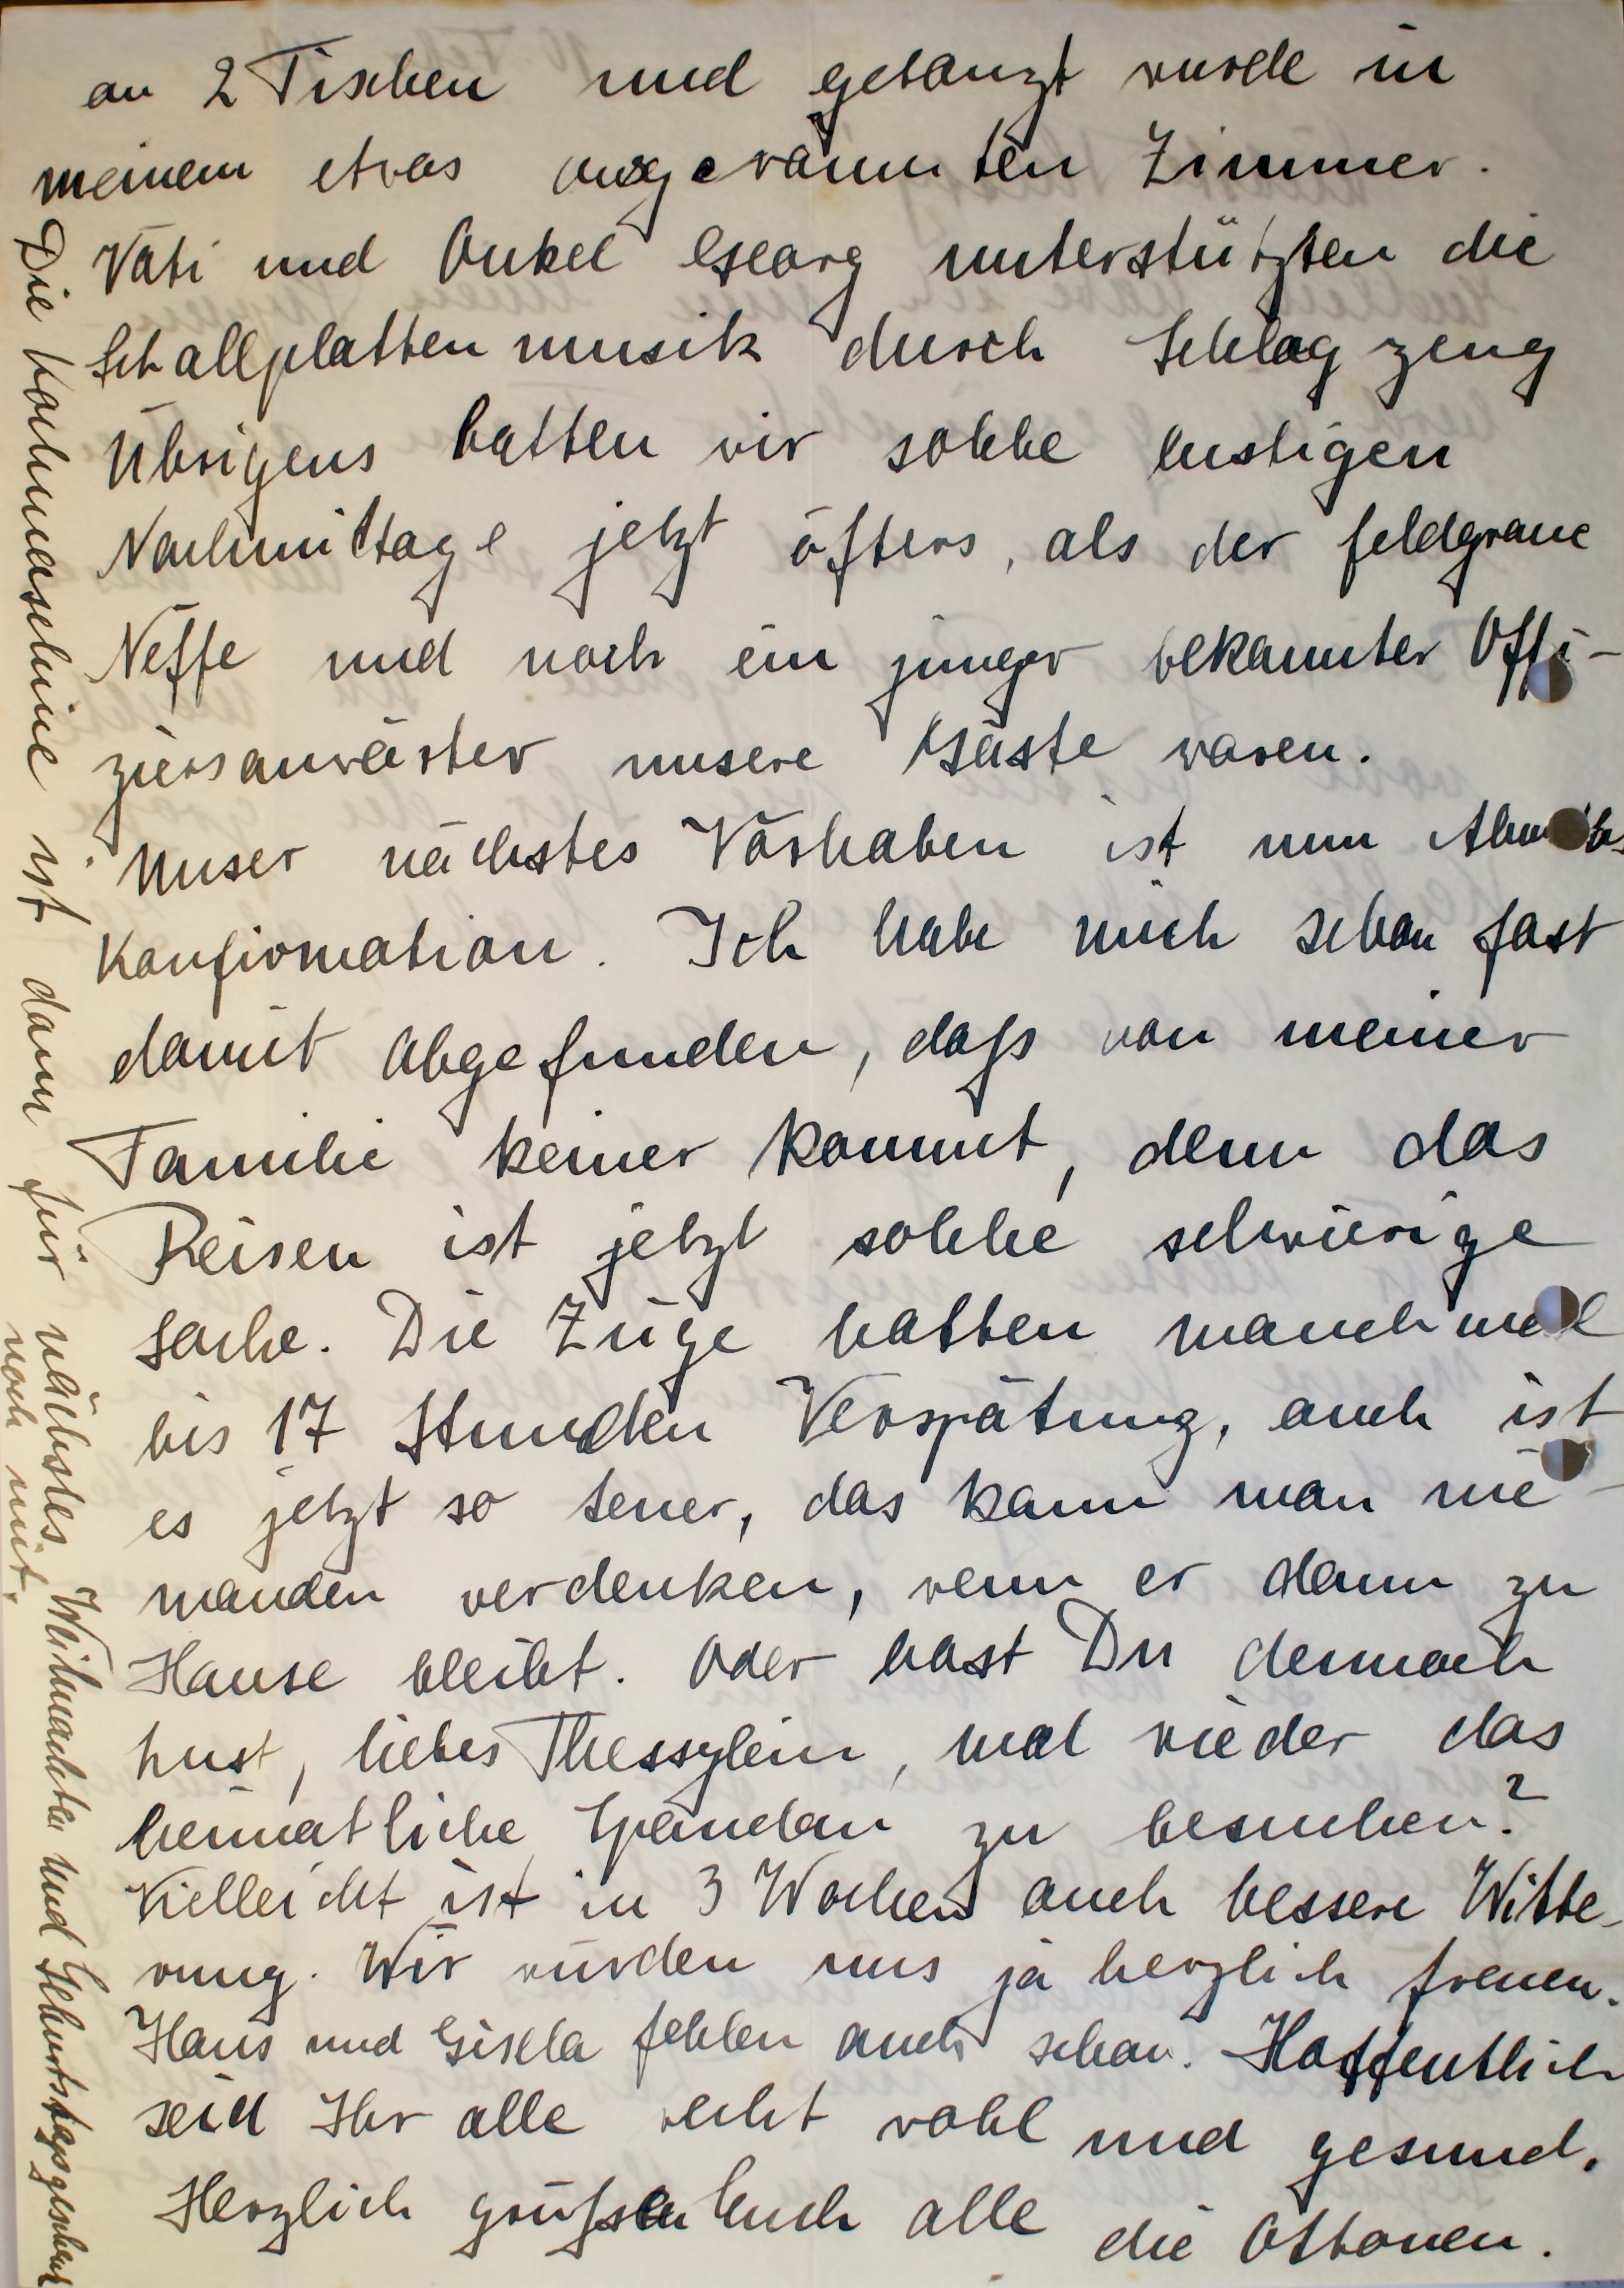 an 2 Tischen und getanzt wurde in
meinem etwas ausgeräumten Zimmer.
Vati und Onkel Georg unterstützten die
Schallplattenmusik durch Schlagzeug
Übrigens hatten wir solche lustigen
Nachmittage jetzt öfters, als der feldgraue
Neffe und noch ein junger bekannter Offi-
ziersanwärter unsere Gäste waren.
Unser nächstes Vorhaben ist nun
Konfirmation. Ich habe mich schon fast
damit abgefunden, daß von meiner
Familie keiner kommt, denn das
Reisen ist jetzt solche schwierige
Sache. Die Züge hatten manchmal
bis 17 Stunden Verspätung, auch ist
es jetzt so teuer, das kann man nie-
manden verdenken, wenn er dann zu
Hause bleibt. Oder hast Du dennoch
Lust, liebes Thessylein, mal wieder das
heimatliche Spandau zu besuchen?
Vielleicht ist in 3 Wochen auch bessere Witte-
rung. Wir würden uns ja herzlich freuen.
Hans und Gisela fehlen auch schon. Hoffentlich
seid Ihr alle recht wohl und gesund.
Herzlich grüßen Euch alle die Ottonen.
Die Kochmaschine ist dann für nächstes Weihnachten und Geburtstagsgeschenk
noch mit.